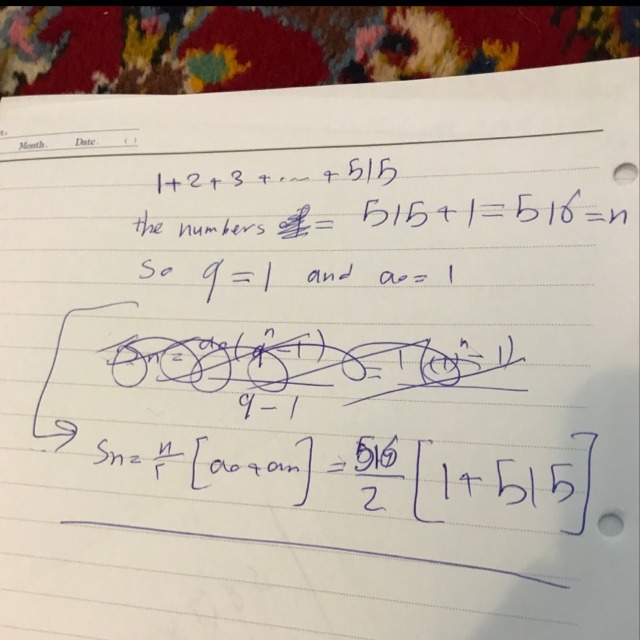 Month Date ( )
1+2+3+....+515
the numbers = 515+1=516=n
So q=1 and a₀=1
q-1
Sn=n/٢[a₀+an]=516/2[1+515]